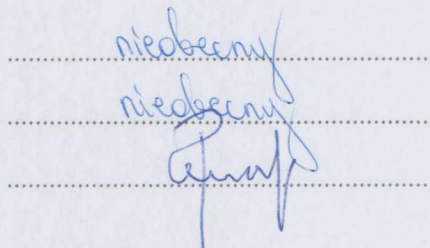 nieobecny
nieobecny